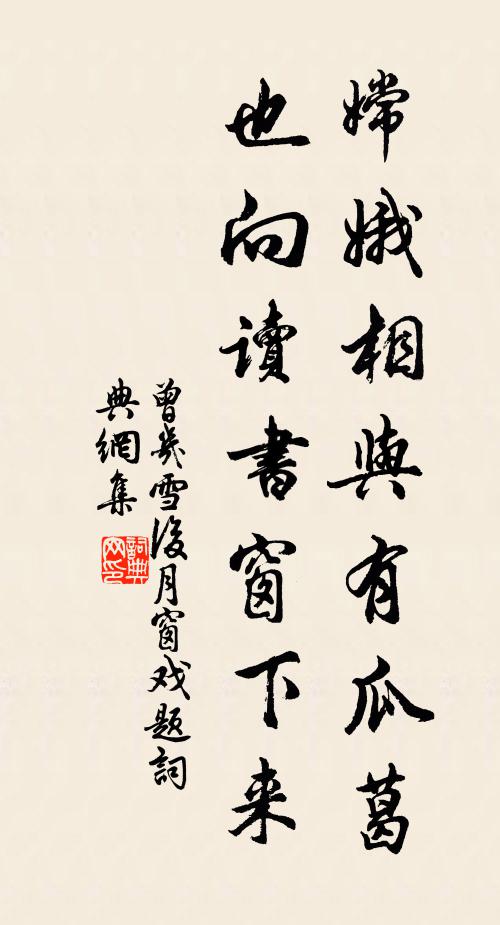 嫦娥相與有瓜葛
也向讀書窗下来
曾幾雪後月窗戏題詞
典網集
詞典网印